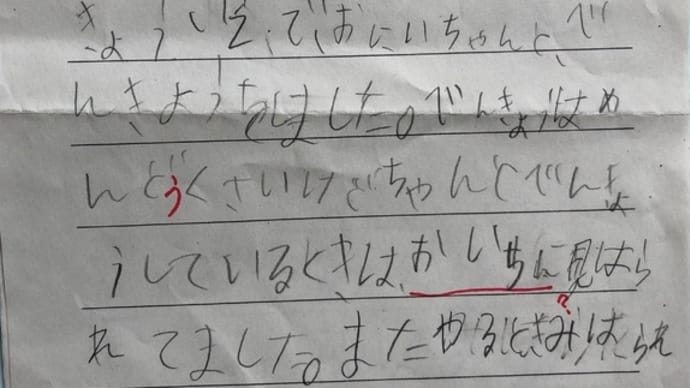 きょう、でおにいちゃんと、べ
んきょうをしました。べんきょうはめ
んどうくさいけどちゃんとべんきょ
うしているときは、おいちに見はら
?
れてました。またやるときみはられ